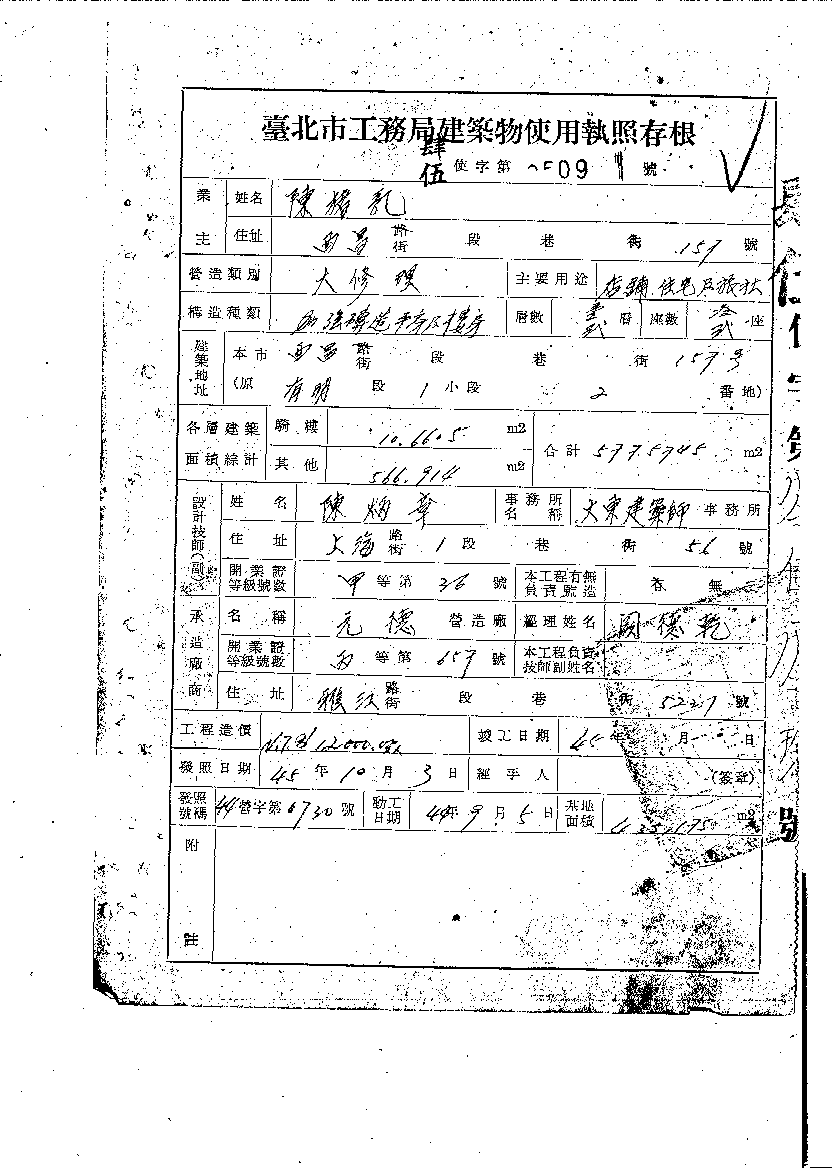 臺北市工務局建築物使用執照存根
肆伍 使字第 0509 號
業主 姓名 陳
住址 西昌 路街 段 巷 衖 159 號
營造類別 大修理 主要用途 店鋪住宅及旅社
構造種類 加強磚造平房及樓房 層數 壹貳 層 座數 貳 座
建築地址 本市 西昌 路街 段 巷 衖 159 号
(原 有明 段 1 小段 2 番地)
各層建築面積綜計 騎樓 10.6605 m2 合計 577.5745 m2
其他 566.914 m2
設計技師(副) 姓名 陳炳華 事務所名稱 大東建築師 事務所
住址 上海 路街 1 段 巷 衖 56 號
開業證等級號數 甲 等第 36 號 本工程有無負責監造 無
承造廠商 名稱 元德 營造廠 經理姓名 德乾
開業證等級號數 丙 等第 659 號 本工程負責技師副姓名
住址 雅江 路街 段 巷 衖 號
工程造價 竣工日期 45 年 月 日
發照日期 45 年 10 月 3 日 經手人 (簽章)
發照號碼 44 營字第 6730 號 動工日期 44 年 9 月 5 日 基地面積 m2
附註